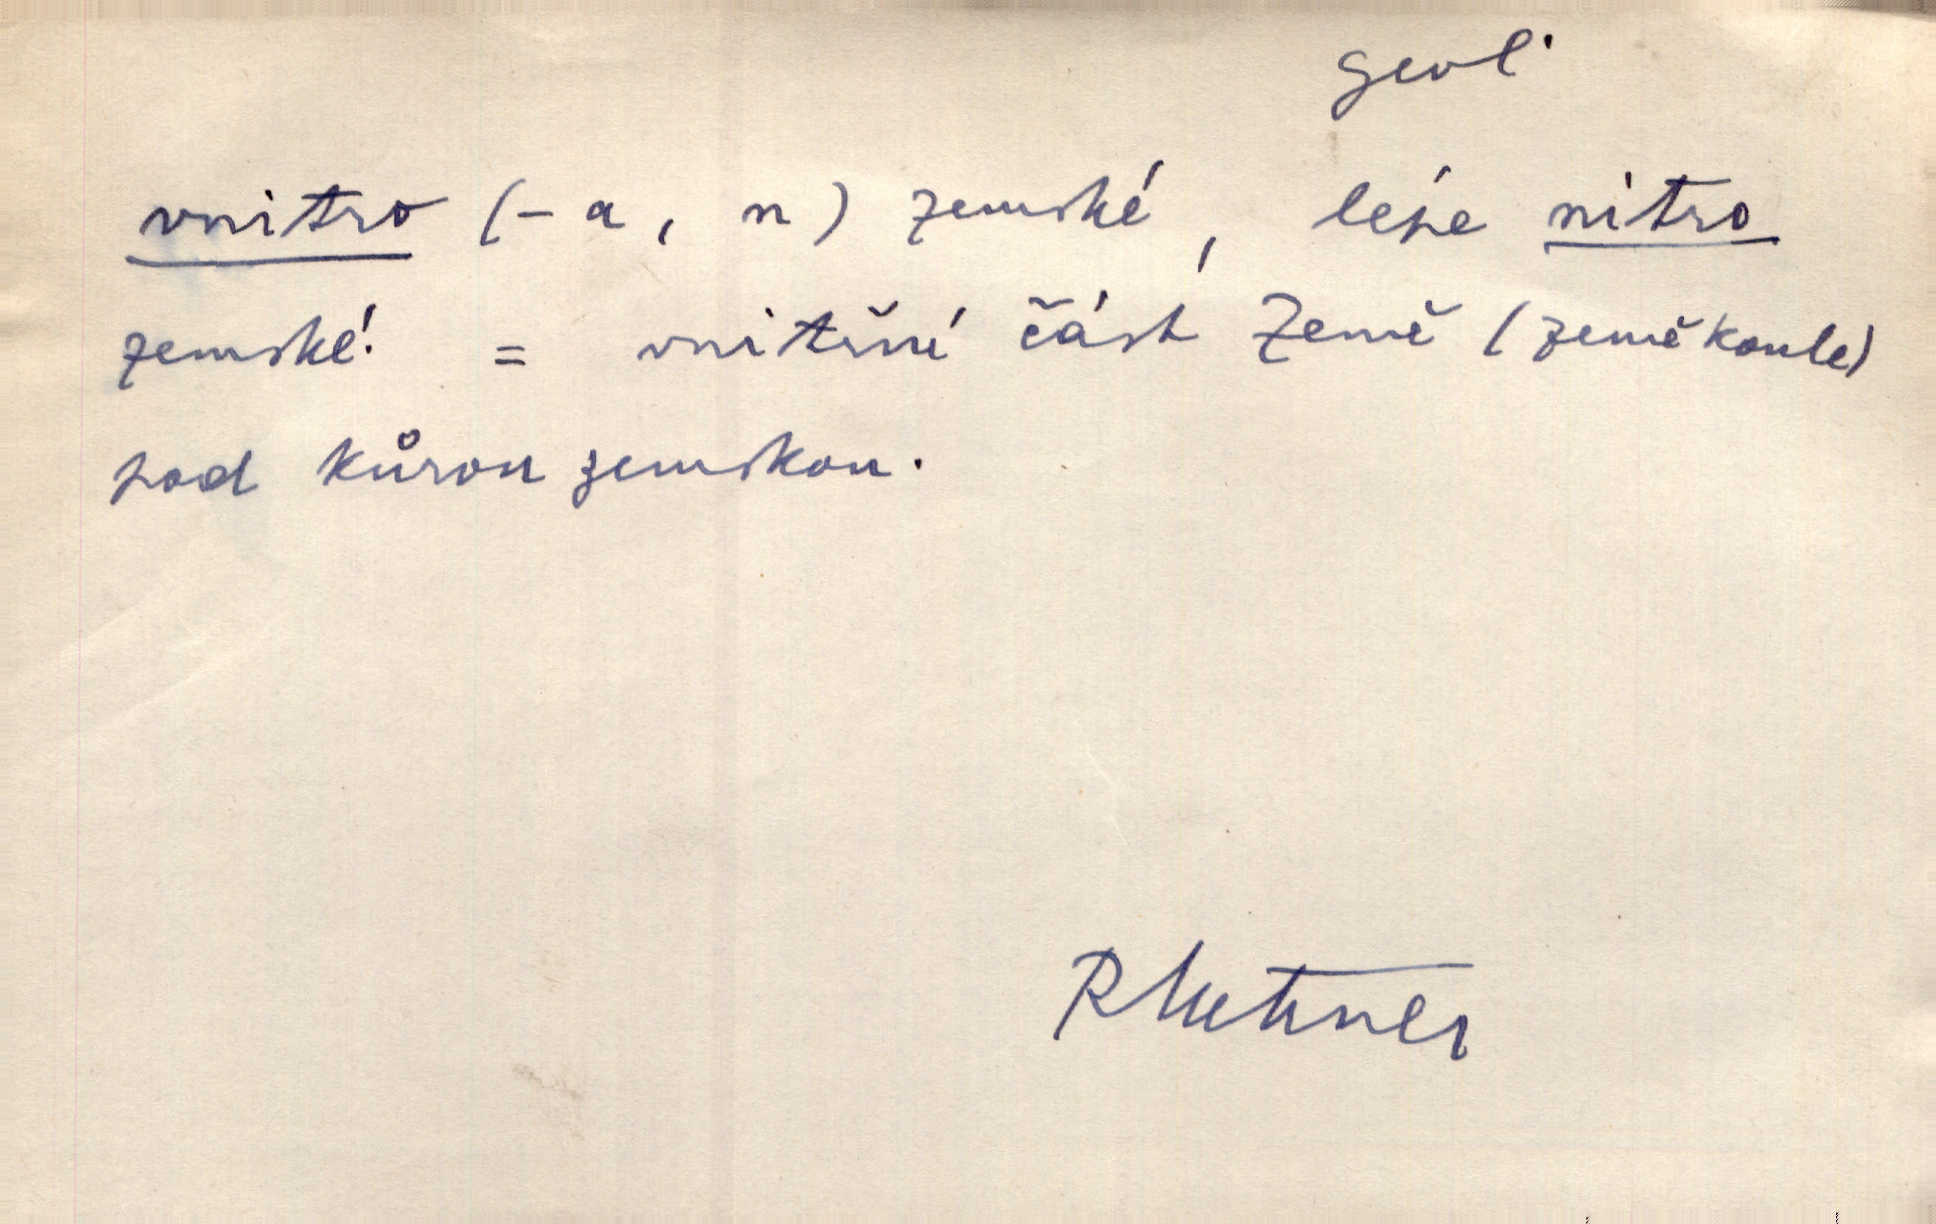 geol.
vnitro (-a, n) zemské, lépe nitro
zemské. = vnitřní část Země (zeměkoule)
pod kůrou zemskou.